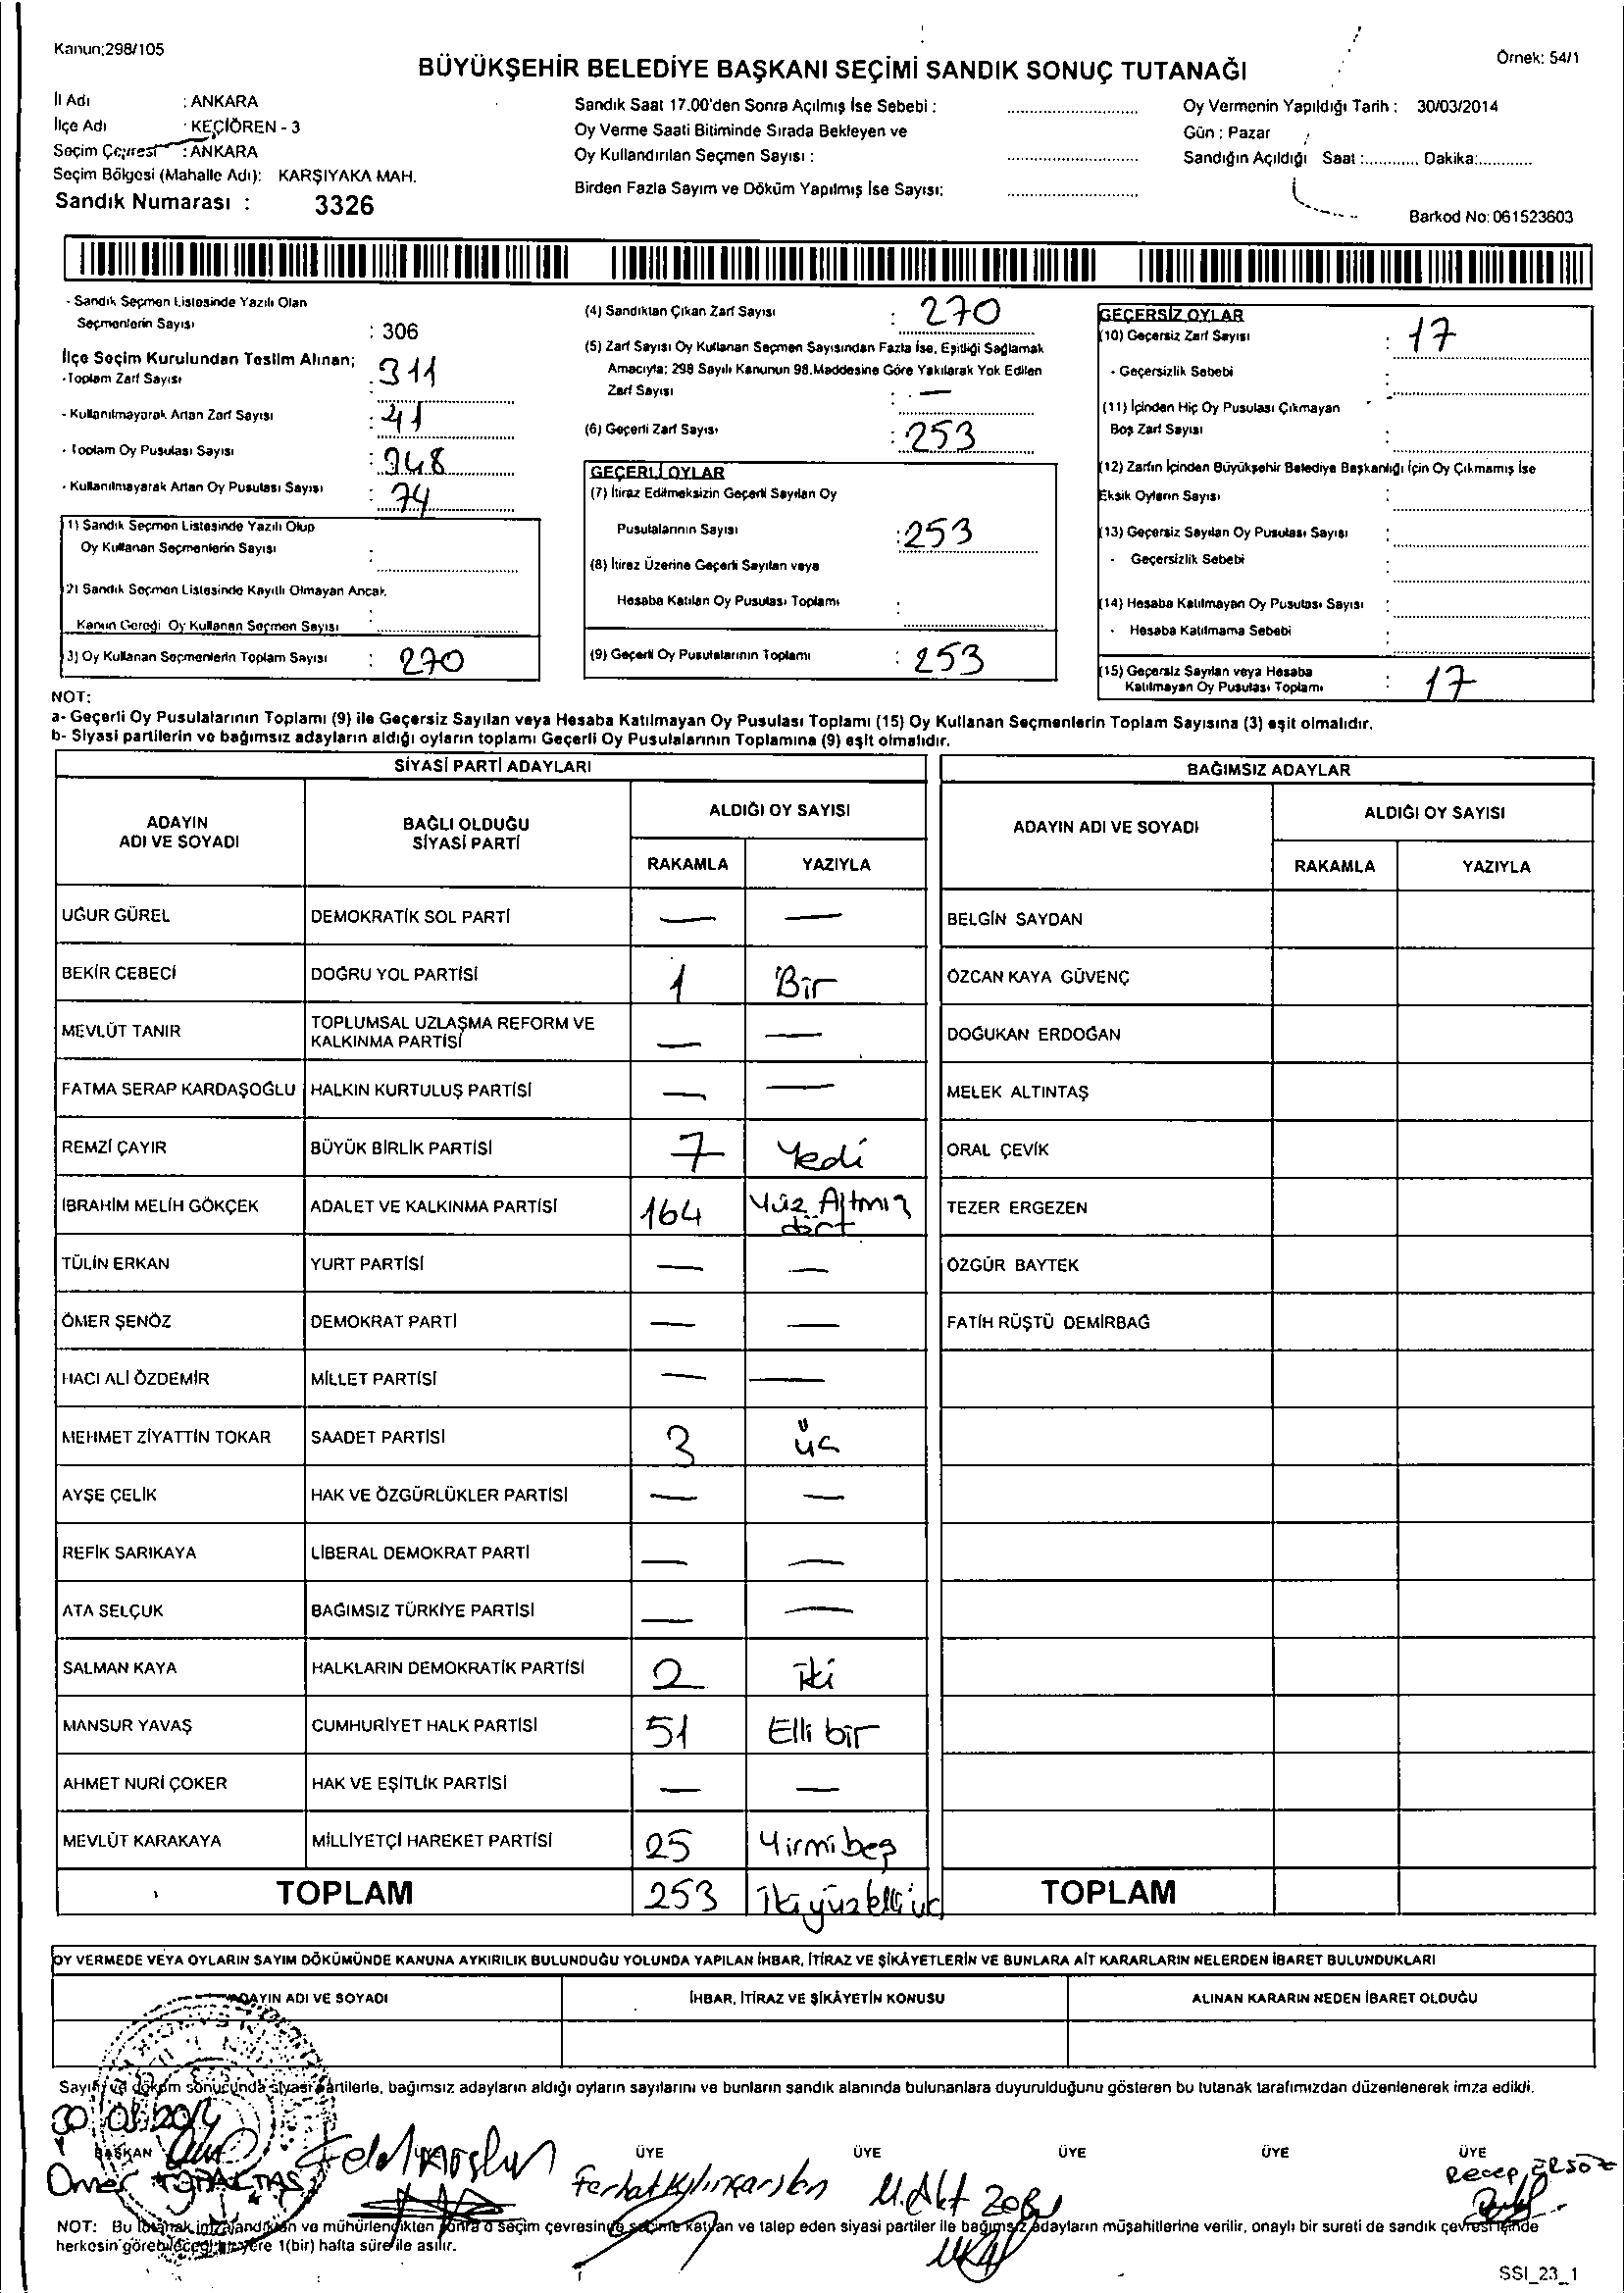 Kanun;298/105
Örnek: 54/1
BÜYÜKŞEHİR BELEDİYE BAŞKANI SEÇİMİ SANDIK SONUÇ TUTANAĞI
İl Adı : ANKARA
İlçe Adı : KEÇİÖREN - 3
Seçim Çevresi : ANKARA
Seçim Bölgesi (Mahalle Adı): KARŞIYAKA MAH.
Sandık Numarası : 3326
Sandık Saat 17.00'den Sonra Açılmış İse Sebebi :
Oy Verme Saati Bitiminde Sırada Bekleyen ve
Oy Kullandırılan Seçmen Sayısı :
Birden Fazla Sayım ve Döküm Yapılmış İse Sayısı:
Oy Vermenin Yapıldığı Tarih : 30/03/2014
Gün : Pazar
Sandığın Açıldığı Saat :............ Dakika:............
Barkod No: 061523603
- Sandık Seçmen Listesinde Yazılı Olan
Seçmenlerin Sayısı : 306
İlçe Seçim Kurulundan Teslim Alınan;
-Toplam Zarf Sayısı : 311
- Kullanılmayarak Artan Zarf Sayısı : 41
- Toplam Oy Pusulası Sayısı : 348
- Kullanılmayarak Artan Oy Pusulası Sayısı : 74
1) Sandık Seçmen Listesinde Yazılı Olup
Oy Kullanan Seçmenlerin Sayısı :
2) Sandık Seçmen Listesinde Kayıtlı Olmayan Ancak
Kanun Gereği Oy Kullanan Seçmen Sayısı :
3) Oy Kullanan Seçmenlerin Toplam Sayısı : 270
(4) Sandıktan Çıkan Zarf Sayısı : 270
(5) Zarf Sayısı Oy Kullanan Seçmen Sayısından Fazla İse, Eşitliği Sağlamak
Amacıyla; 298 Sayılı Kanunun 98.Maddesine Göre Yakılarak Yok Edilen
Zarf Sayısı : —
(6) Geçerli Zarf Sayısı : 253
GEÇERLİ OYLAR
(7) İtiraz Edilmeksizin Geçerli Sayılan Oy
Pusulalarının Sayısı : 253
(8) İtiraz Üzerine Geçerli Sayılan veya
Hesaba Katılan Oy Pusulası Toplamı :
(9) Geçerli Oy Pusulalarının Toplamı : 253
GEÇERSİZ OYLAR
(10) Geçersiz Zarf Sayısı : 17
- Geçersizlik Sebebi :
(11) İçinden Hiç Oy Pusulası Çıkmayan
Boş Zarf Sayısı :
(12) Zarfın İçinden Büyükşehir Belediye Başkanlığı İçin Oy Çıkmamış İse
Eksik Oyların Sayısı :
(13) Geçersiz Sayılan Oy Pusulası Sayısı :
- Geçersizlik Sebebi :
(14) Hesaba Katılmayan Oy Pusulası Sayısı :
- Hesaba Katılmama Sebebi :
(15) Geçersiz Sayılan veya Hesaba
Katılmayan Oy Pusulası Toplamı : 17
NOT:
a- Geçerli Oy Pusulalarının Toplamı (9) ile Geçersiz Sayılan veya Hesaba Katılmayan Oy Pusulası Toplamı (15) Oy Kullanan Seçmenlerin Toplam Sayısına (3) eşit olmalıdır.
b- Siyasi partilerin ve bağımsız adayların aldığı oyların toplamı Geçerli Oy Pusulalarının Toplamına (9) eşit olmalıdır.
SİYASİ PARTİ ADAYLARI
ADAYIN
ADI VE SOYADI
BAĞLI OLDUĞU
SİYASİ PARTİ
ALDIĞI OY SAYISI
RAKAMLA YAZIYLA
UĞUR GÜREL DEMOKRATİK SOL PARTİ — —
BEKİR CEBECİ DOĞRU YOL PARTİSİ 1 Bir
MEVLÜT TANIR TOPLUMSAL UZLAŞMA REFORM VE
KALKINMA PARTİSİ — —
FATMA SERAP KARDAŞOĞLU HALKIN KURTULUŞ PARTİSİ — —
REMZİ ÇAYIR BÜYÜK BİRLİK PARTİSİ 7 Yedi
İBRAHİM MELİH GÖKÇEK ADALET VE KALKINMA PARTİSİ 164 Yüz Altmış
dört
TÜLİN ERKAN YURT PARTİSİ — —
ÖMER ŞENÖZ DEMOKRAT PARTİ — —
HACI ALİ ÖZDEMİR MİLLET PARTİSİ — —
MEHMET ZİYATTİN TOKAR SAADET PARTİSİ 3 üç
AYŞE ÇELİK HAK VE ÖZGÜRLÜKLER PARTİSİ — —
REFİK SARIKAYA LİBERAL DEMOKRAT PARTİ — —
ATA SELÇUK BAĞIMSIZ TÜRKİYE PARTİSİ — —
SALMAN KAYA HALKLARIN DEMOKRATİK PARTİSİ 2 İki
MANSUR YAVAŞ CUMHURİYET HALK PARTİSİ 51 Elli bir
AHMET NURİ ÇOKER HAK VE EŞİTLİK PARTİSİ — —
MEVLÜT KARAKAYA MİLLİYETÇİ HAREKET PARTİSİ 25 Yirmi beş
TOPLAM 253 İki yüz elli üç
BAĞIMSIZ ADAYLAR
ADAYIN ADI VE SOYADI
ALDIĞI OY SAYISI
RAKAMLA YAZIYLA
BELGİN SAYDAN
ÖZCAN KAYA GÜVENÇ
DOĞUKAN ERDOĞAN
MELEK ALTINTAŞ
ORAL ÇEVİK
TEZER ERGEZEN
ÖZGÜR BAYTEK
FATİH RÜŞTÜ DEMİRBAĞ
TOPLAM
OY VERMEDE VEYA OYLARIN SAYIM DÖKÜMÜNDE KANUNA AYKIRILIK BULUNDUĞU YOLUNDA YAPILAN İHBAR, İTİRAZ VE ŞİKÂYETLERİN VE BUNLARA AİT KARARLARIN NELERDEN İBARET BULUNDUKLARI
ADAYIN ADI VE SOYADI
İHBAR, İTİRAZ VE ŞİKÂYETİN KONUSU
ALINAN KARARIN NEDEN İBARET OLDUĞU
Sayım ve döküm sonucunda siyasi partilerle, bağımsız adayların aldığı oyların sayılarını ve bunların sandık alanında bulunanlara duyurulduğunu gösteren bu tutanak tarafımızdan düzenlenerek imza edildi.
30.03.2014
BAŞKAN ÜYE ÜYE ÜYE ÜYE ÜYE
Ömer TOPAKTAŞ
Ferhat
Recep ERSÖZ
NOT: Bu tutanak imzalandıktan ve mühürlendikten sonra o seçim çevresinde seçime katılan ve talep eden siyasi partiler ile bağımsız adayların müşahitlerine verilir, onaylı bir sureti de sandık çevresi içinde
herkesin görebileceği bir yere 1(bir) hafta süre ile asılır.
SSI_23_1